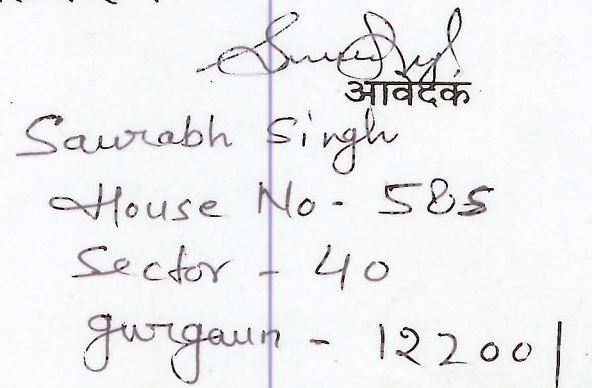 आवेदक
Saurabh Singh
House No - 585
Sector - 40
gurgaun - 122001